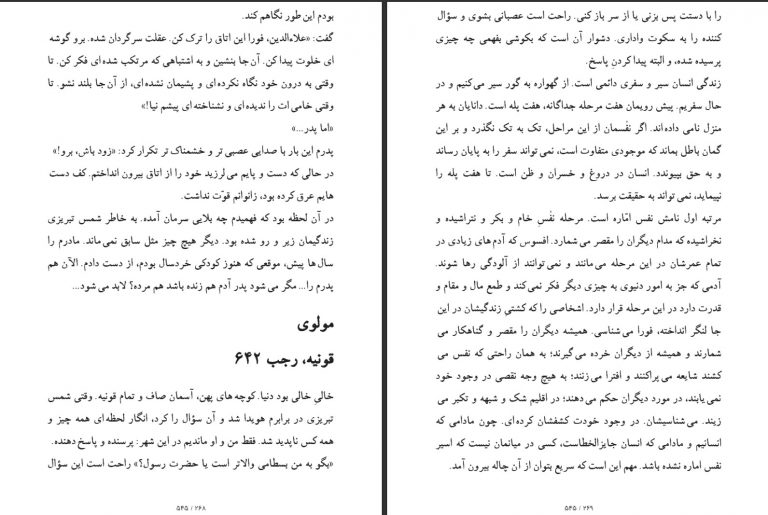 بودم این طور نگاهم کند.
گفت: «علاءالدین، فورا این اتاق را ترک کن. عقلت سرگردان شده. برو گوشه
ای خلوت پیدا کن. آن جا بنشین و به اشتباهی که مرتکب شده ای فکر کن. تا
وقتی به درون خود نگاه نکرده ای و پشیمان نشده ای، از آن جا بلند نشو. تا
وقتی خامی ات را ندیده ای و نشناخته ای پیشم نیا!»
«اما پدر...»
پدرم این بار با صدایی عصبی تر و خشمناک تر تکرار کرد: «زود باش، برو!»
در حالی که دست و پایم می لرزید خود را از اتاق بیرون انداختم. کف دست
هایم عرق کرده بود، زانوانم قوّت نداشت.
در آن لحظه بود که فهمیدم چه بلایی سرمان آمده. به خاطر شمس تبریزی
زندگیمان زیر و رو شده بود. دیگر هیچ چیز مثل سابق نمی ماند. مادرم را
سال ها پیش، موقعی که هنوز کودکی خردسال بودم، از دست دادم. الآن هم
پدرم را... مگر می شود پدر آدم هم زنده باشد هم مرده؟ لابد می شود...
مولوی
قونیه، رجب ۶۴۲
خالیِ خالی بود دنیا. کوچه های پهن، آسمان صاف و تمام قونیه. وقتی شمس
تبریزی در برابرم هویدا شد و آن سؤال را کرد، انگار لحظه ای همه چیز و
همه کس ناپدید شد. فقط من و او ماندیم در این شهر: پرسنده و پاسخ دهنده.
«بگو به من بسطامی والاتر است یا حضرت رسول؟» راحت است این سؤال
۲۶۸ / ۵۴۵
را با دستت پس بزنی یا از سر باز کنی. راحت است عصبانی بشوی و سؤال
کننده را به سکوت واداری. دشوار آن است که بکوشی بفهمی چه چیزی
پرسیده شده، و البته پیدا کردنِ پاسخ.
زندگی انسان سیر و سفری دائمی است. از گهواره به گور سیر می کنیم و در
حال سفریم. پیش رویمان هفت مرحله جداگانه، هفت پله است. دانایان به هر
منزل نامی داده اند. اگر نَفْسمان از این مراحل، تک به تک نگذرد و بر این
گمان باطل بماند که موجودی متفاوت است، نمی تواند سفر را به پایان رساند
و به حق بپیوندد. انسان در دروغ و خسران و ظن است. تا هفت پله را
نپیماید، نمی تواند به حقیقت برسد.
مرتبه اول نامش نفس امّاره است. مرحله نفْسِ خام و بکر و نتراشیده و
نخراشیده که مدام دیگران را مقصر می شمارد. افسوس که آدم های زیادی در
تمام عمرشان در این مرحله می مانند و نمی توانند از آلودگی رها شوند.
آدمی که جز به امور دنیوی به چیزی دیگر فکر نمی کند و طمع مال و مقام و
قدرت دارد در این مرحله قرار دارد. اشخاصی را که کشتیِ زندگیشان در این
جا لنگر انداخته، فورا می شناسی. همیشه دیگران را مقصر و گناهکار می
شمارند و همیشه از دیگران خرده می گیرند؛ به همان راحتی که نفس می
کشند شایعه می پراکنند و افترا می زنند؛ به هیچ وجه نقصی در وجود خود
نمی یابند، در مورد دیگران حکم می دهند؛ در اقلیم شک و شبهه و تکبر می
زیند. می شناسیشان. در وجود خودت کشفشان کرده ای. چون مادامی که
انسانیم و مادامی که انسان جایزالخطاست، کسی در میانمان نیست که اسیر
نفس اماره نشده باشد. مهم این است که سریع بتوان از آن چاله بیرون آمد.
۲۶۹ / ۵۴۵